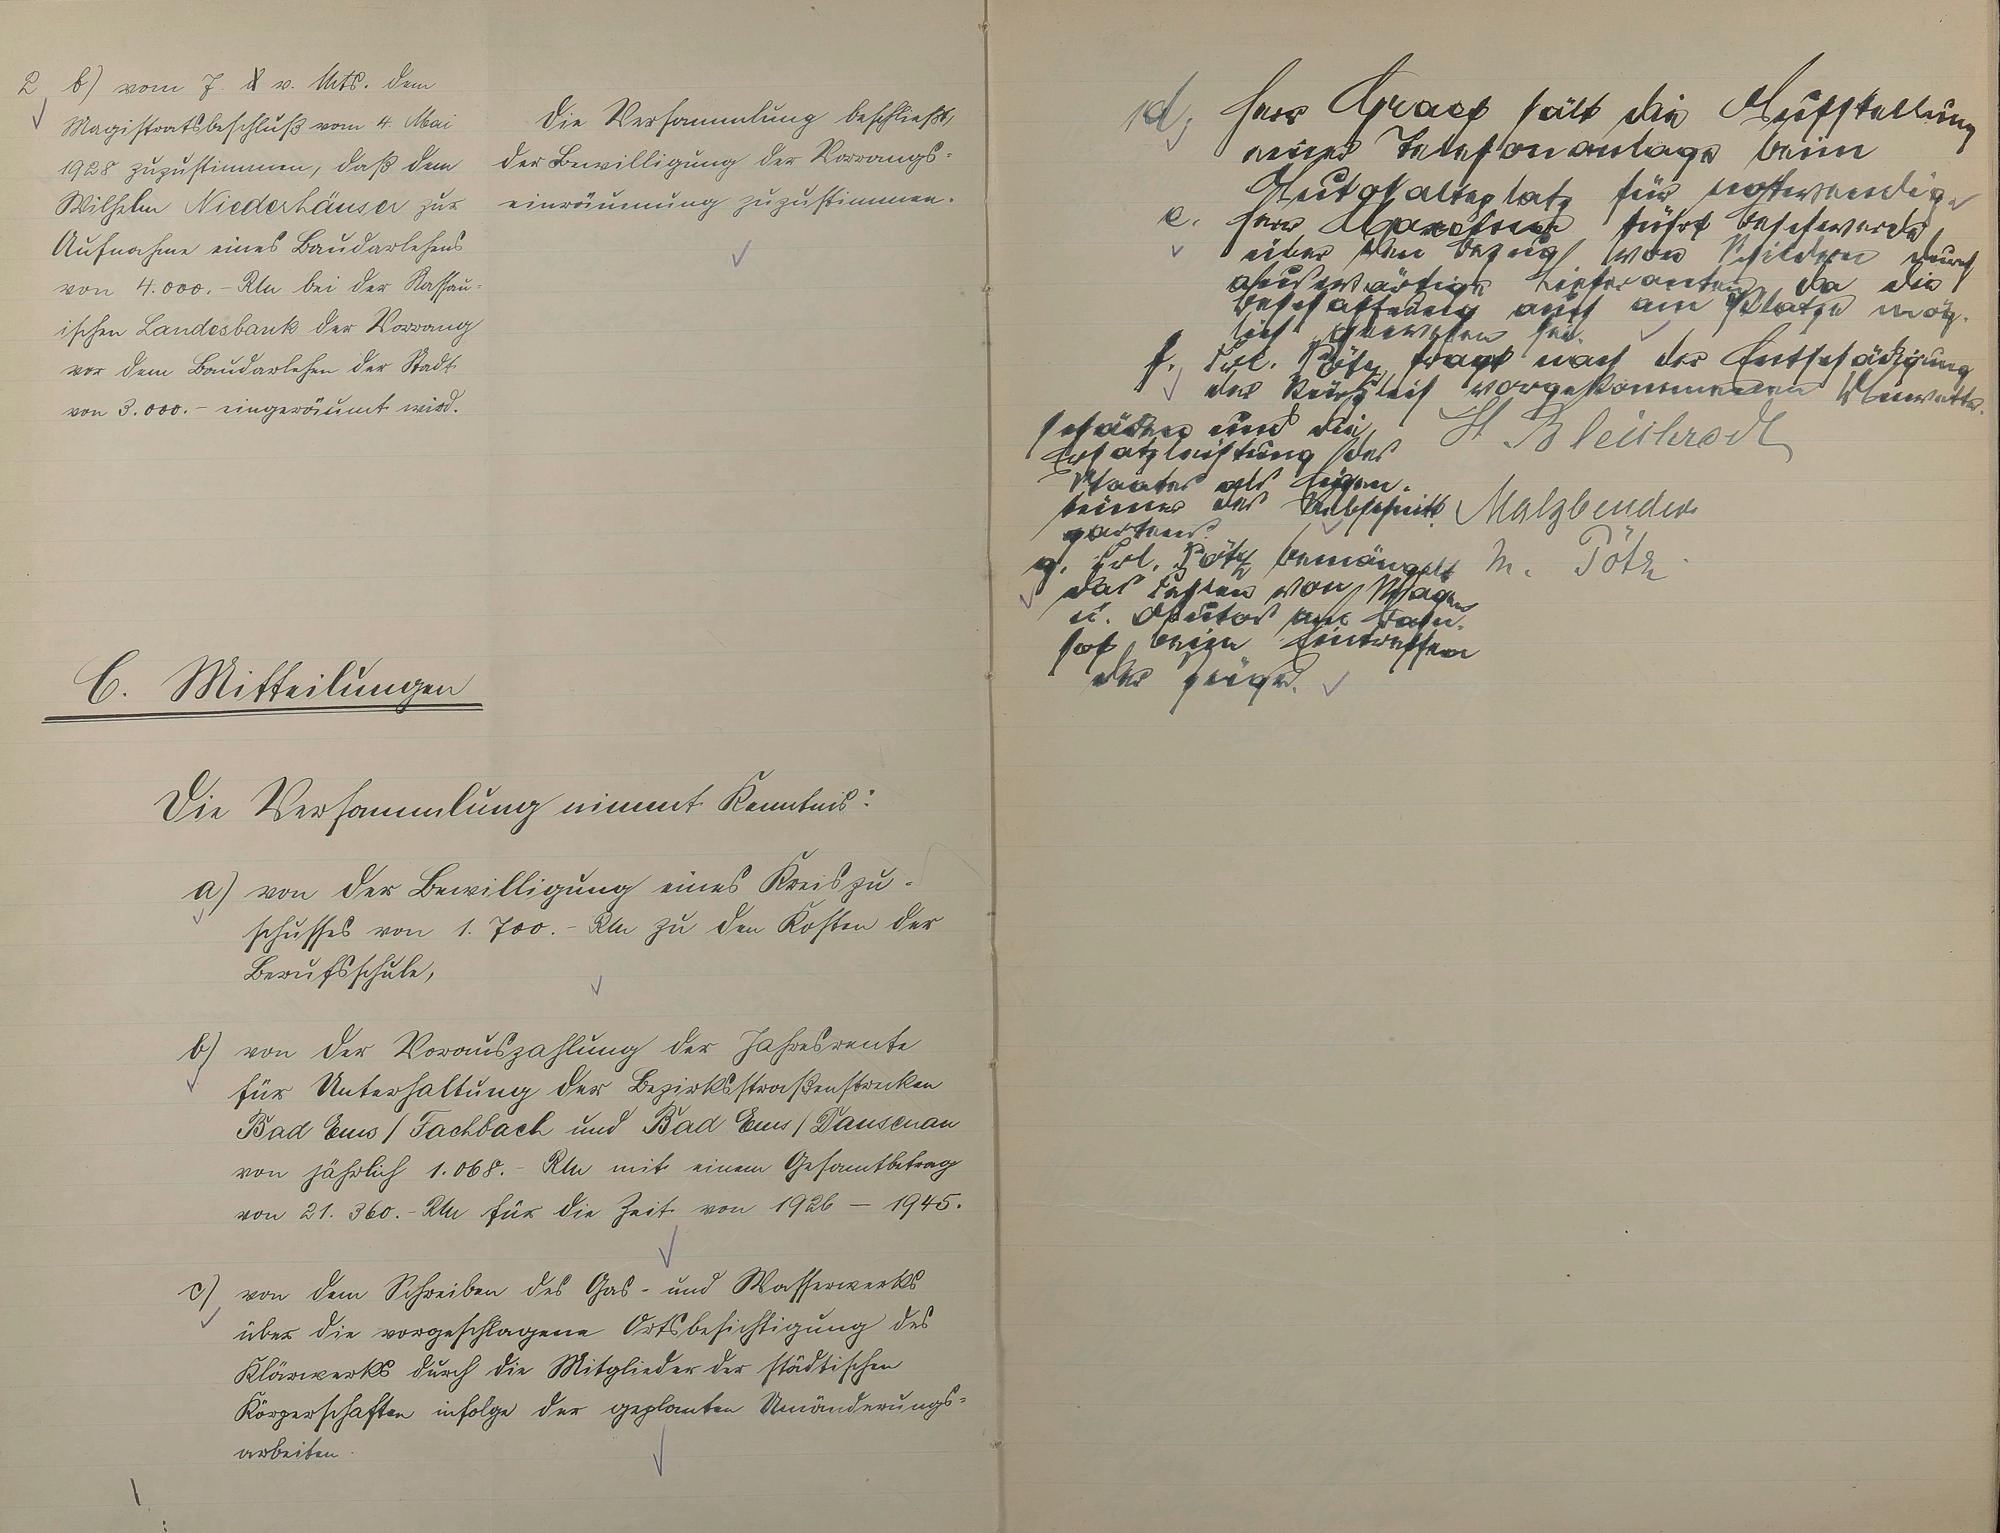 2 b) vom 7. v. Mts. dem
Magistratsbeschluß vom 4. Mai
1928 zuzustimmen, daß dem
Wilhelm Niederhäuser zur
Aufnahme eines Baudarlehens
von 4.000.- RM bei der Nassau-
ischen Landesbank der Vorrang
vor dem Baudarlehen der Stadt
von 3.000.- eingeräumt wird.
Die Versammlung beschließt,
der Bewilligung der Vorrangs-
einräumung zuzustimmen.
C. Mitteilungen
Die Versammlung nimmt Kenntnis:
a) von der Bewilligung eines Kreiszu-
schusses von 1.700.- RM zu den Kosten der
Berufsschule,
b) von der Vorauszahlung der Jahresrente
für Unterhaltung der Bezirksstraßenstrecken
Bad Ems / Fachbach und Bad Ems / Dausenau
von jährlich 1.068.- RM mit einem Gesamtbetrag
von 21.360.- RM für die Zeit von 1926 – 1945.
c) von dem Schreiben des Gas- und Wasserwerks
über die vorgeschlagene Ortsbesichtigung des
Klärwerks durch die Mitglieder der städtischen
Körperschaften infolge der geplanten Umänderungs-
arbeiten.
d, Herr Graef hält die Aufstellung
einer Telefonanlage beim
Autohalteplatz für notwendig.
e. Herr führt Beschwerde
über den Bezug von Schildern durch
auswärtige Lieferanten, da die
Beschaffung auch am Platze mög-
lich gewesen sei.
f. Frl. Pötz fragt nach der Entschädigung
der kürzlich vorgekommenen Unwetter-
schäden und die
Ersatzleistung des
Staates als Eigen-
tümer des
gartens.
g. Frl. Pötz bemängelt
das Fehlen von Wagen
u. Autos am Bahn-
hof beim Eintreffen
der Züge.
H. Bleichrodt
Malzbender
M. Pötz